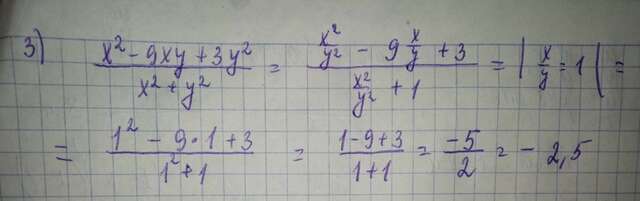 3) (x² - 9xy + 3y²)/(x² + y²) = (x²/y² - 9 x/y + 3)/(x²/y² + 1) = | x/y = 1 | =
= (1² - 9·1 + 3)/(1² + 1) = (1-9+3)/(1+1) = -5/2 = - 2,5